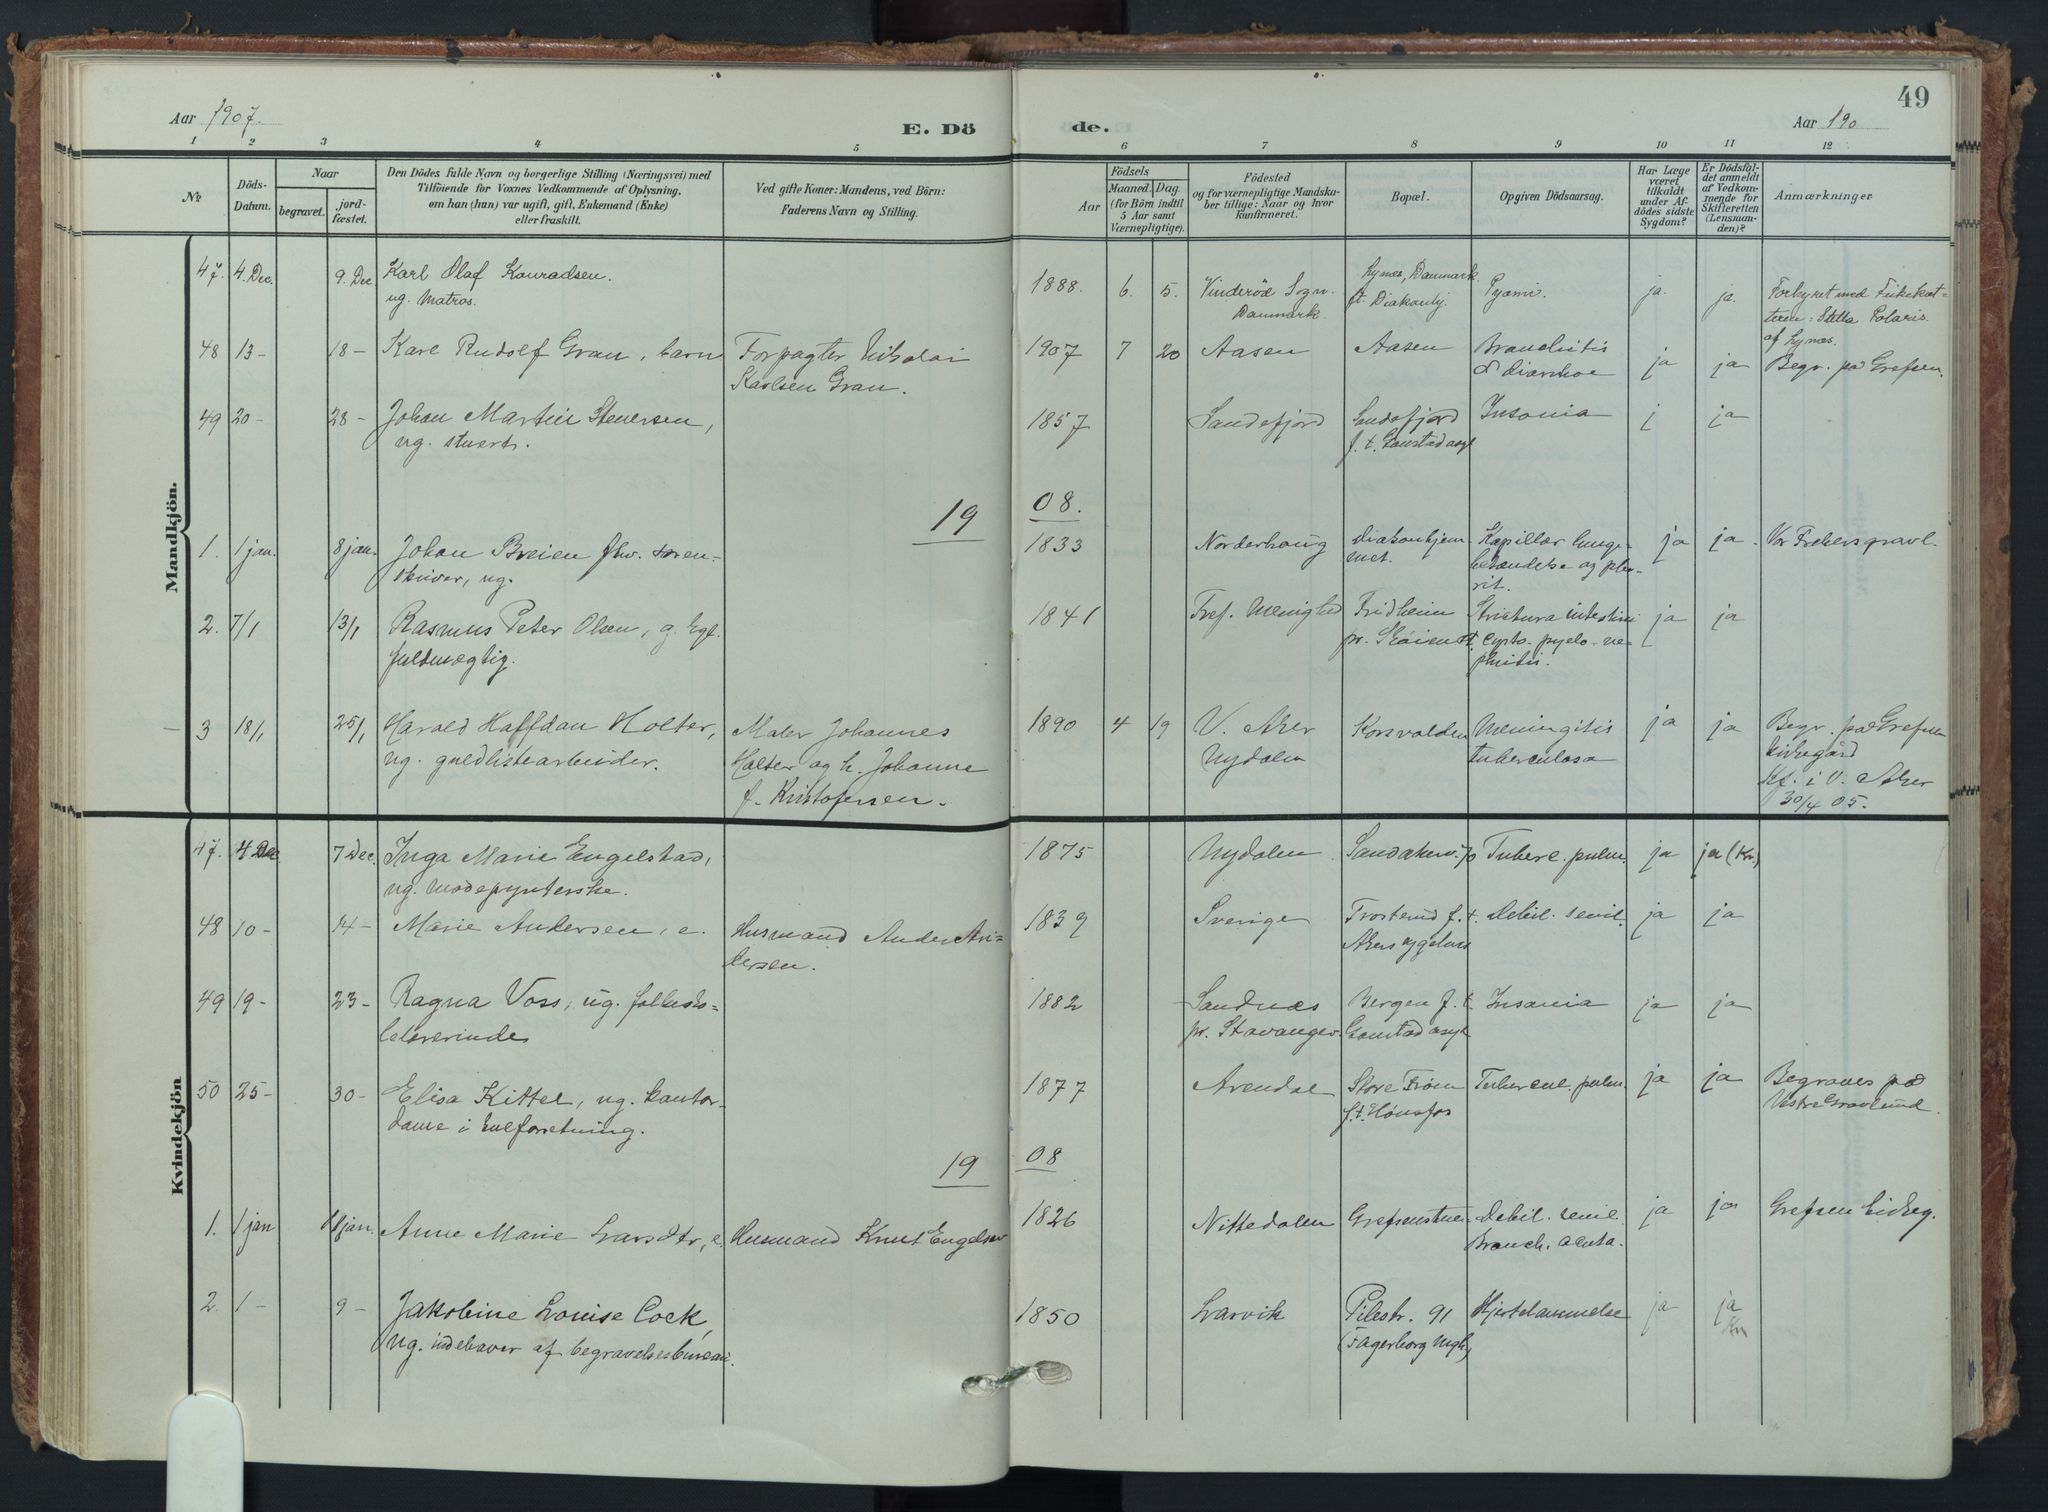 49
Aar 1907.
E. Dö
de.
Aar 190
1 2 3 4 5 6 7 8 9 10 11 12
№
Döds-Datum.
Naar
begravet.
jord-fæstet.
Den Dödes fulde Navn og borgerlige Stilling (Næringsvei) med
Tilföiende for Voxnes Vedkommende af Oplysning,
om han (hun) var ugift, gift, Enkemand (Enke)
eller fraskilt.
Ved gifte Koner: Mandens, ved Börn:
Faderens Navn og Stilling.
Födsels
Aar
Maaned. Dag.
(for Börn indtil
5 Aar samt
Værnepligtige).
Födested
og for værnepligtige Mandska-
ber tillige: Naar og hvor
Konfirmeret.
Bopæl.
Opgiven Dödsaarsag.
Har Læge
været
tilkaldt
under Af-
dödes sidste
Sygdom?
Er Dödsfal-
det anmeldt
af Vedkom-
mende for
Skifteretten
(Lensman-
den)?
Anmærkninger
Mandkjön.
47. 4. Dec. 9. Dec. Karl Olaf Konradsen. 1888. 6. 5. Vinderöd Sogn. Lynæs, Danmark Pyæmi. ja. ja.
ug. Matros. Danmark. f.t. Diakonhj.
Stella Polaris.
af Lynæs.
48 13- 18- Kare Rudolf Gran, barn Forpagter Nikolai 1907 7 20 Aasen Aasen Bronchitis ja ja Begr. på Grefsen.
Karlsen Gran. & diarrhoe
49 20- 28- Johan Martin Stenersen, 1857 Sandefjord Sandefjord Insania j ja
ug. stuert. f.t. Gaustad asyl
1908.
1. 1 jan. 8 jan. Johan Breien fhv. soren- 1833 Norderhoug diakonhjem- Kapillær lunge- ja ja Vor Frelsers gravl.
skriver, ug. met. betændelse og pleu-
rit.
2. 7/1 13/1 Rasmus Peter Olsen, g. 1841 Tref. Menighed Fridheim Strictura intestini ja ja
fuldmægtig. pr. Skøien st. Cysto-pyelo-ne-
phritis.
3 18/1 25/1 Harald Halfdan Holter, Maler Johannes 1890 4 19 V. Aker Korsvolden Meningitis ja ja Begr. på Grefsen
ug. guldlistearbeider. Holter og h. Johanne Nydalen tuberculosa kirkegård
f. Kristofersen. Kf. i V. Aker
30/4 05.
Kvindekjön
47. 4 Dec 7 Dec. Inga Marie Engelstad, 1875 Nydalen Tuberc. pulm. ja ja (Kr.)
ug. modepynterske.
48 10- 14- Marie Andersen, e. Husmand Anders An- 1839 Sverige Trosterud f.t. Debil. senil. ja ja
dersen. Akers sygehus
49 19- 23- Ragna Voss, ug. folkesko- 1882 Sandnæs Bergen f.t. Insania ja ja
lelærerinde pr. Stavanger. Gaustad asyl
50 25- 30- Elisa Kittel, ug. kontor- 1877 Arendal Store Frøen Tubercul. pulm. ja ja Begraves på
dame i forretning. f.t. Hønefos Vestre Gravlund.
1908
1. 1 jan 11 jan. Anne Marie Larsdtr, e. Husmand Knut Engelsen 1826 Nittedalen Grefsenstuen Debil. senil. ja ja Grefsen kirkeg.
Bronch. acuta.
2. 1- 9- Jakobine Louise Cock, 1850 Larvik Pilestr. 91 Hjertelammelse ja ja
ug. indehaver af begravelsesbureau. (Fagerborg mgh.) Kr.